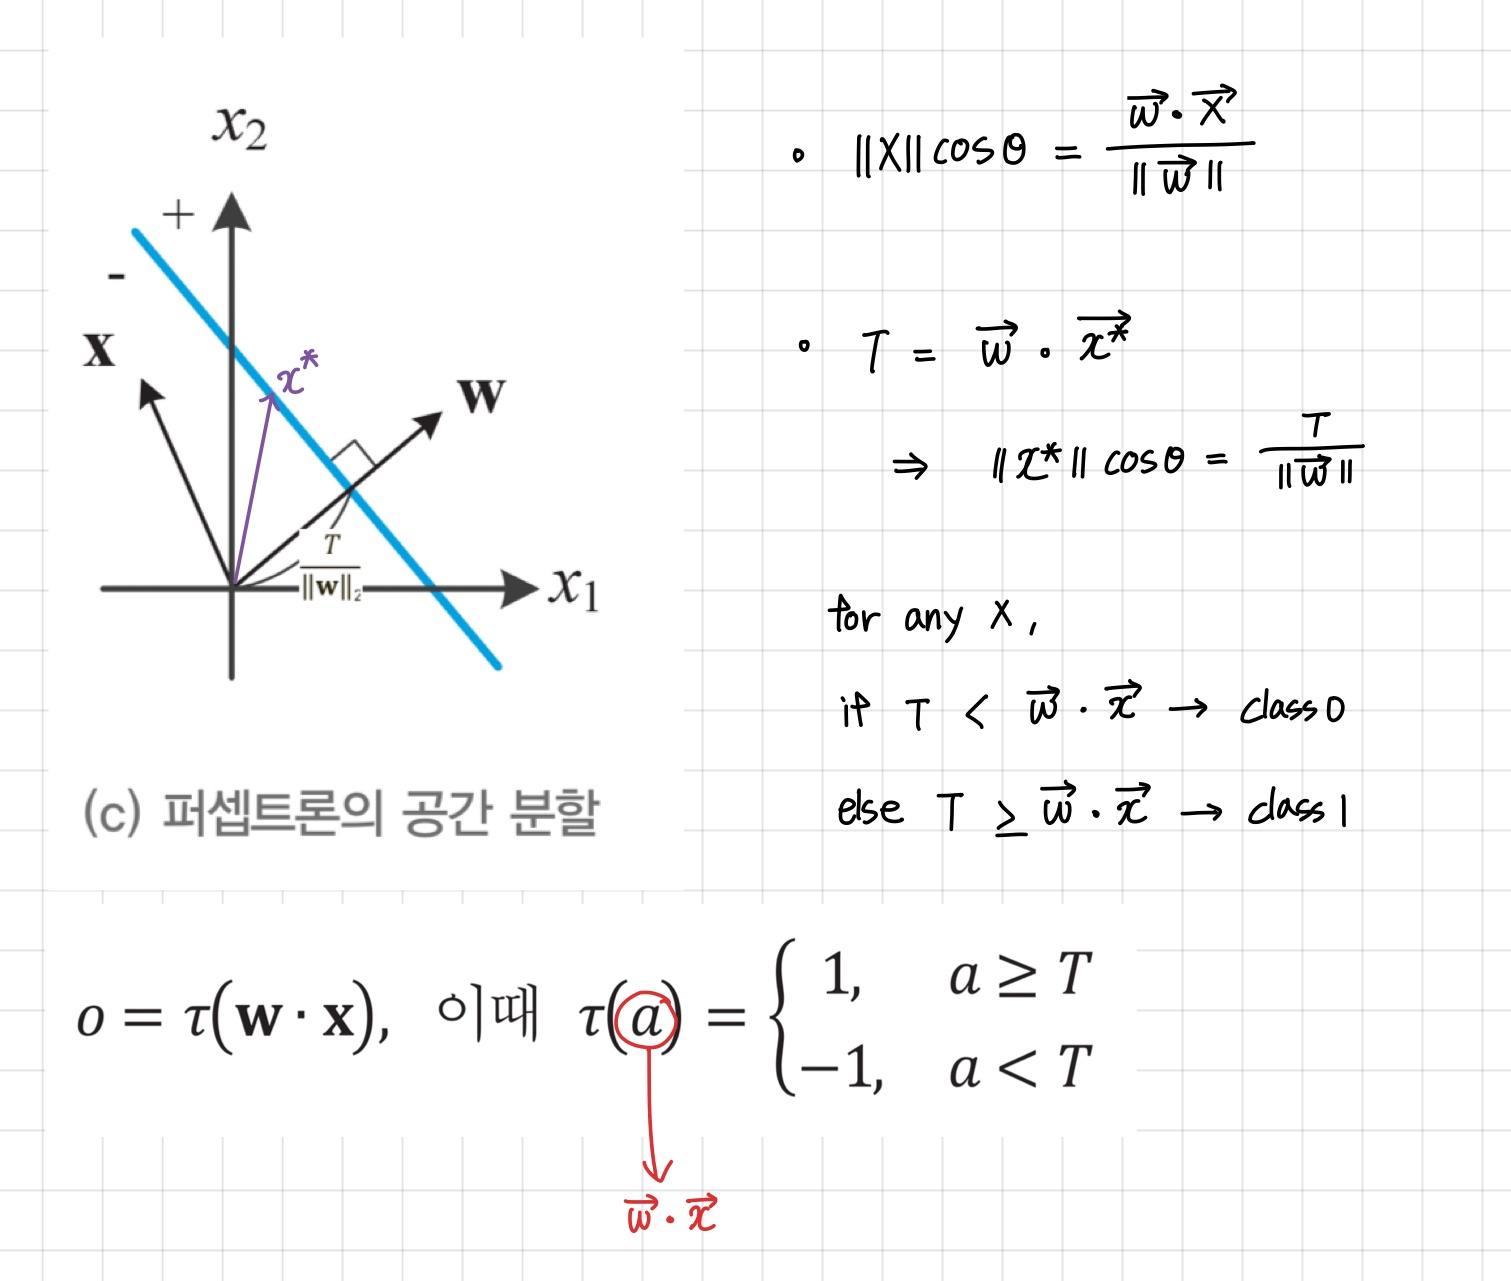 x₂
+
-
x
x*
w
T
‖w‖₂
x₁
(c) 퍼셉트론의 공간 분할
• ‖X‖ cosθ = w⃗·X⃗ / ‖w⃗‖
• T = w⃗ · x⃗*
⇒ ‖x*‖ cosθ = T / ‖w⃗‖
for any x,
if T < w⃗ · x⃗ → class 0
else T ≥ w⃗ · x⃗ → class 1
o = τ(w · x), 이때 τ(a) = { 1, a ≥ T
−1, a < T
w⃗ · x⃗